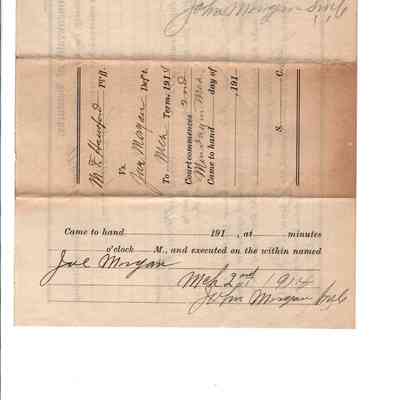 John Morgan
W T Hanford Pl'ff.
Vs.
Joe Morgan Def't.
To Mch Term, 191
Court commences 2nd
Monday in Mch
Came to hand day of
, 191
S. C.
Came to hand 191 , at minutes
o'clock M., and executed on the within named
Joe Morgan
Mch 2nd 1914
John Morgan